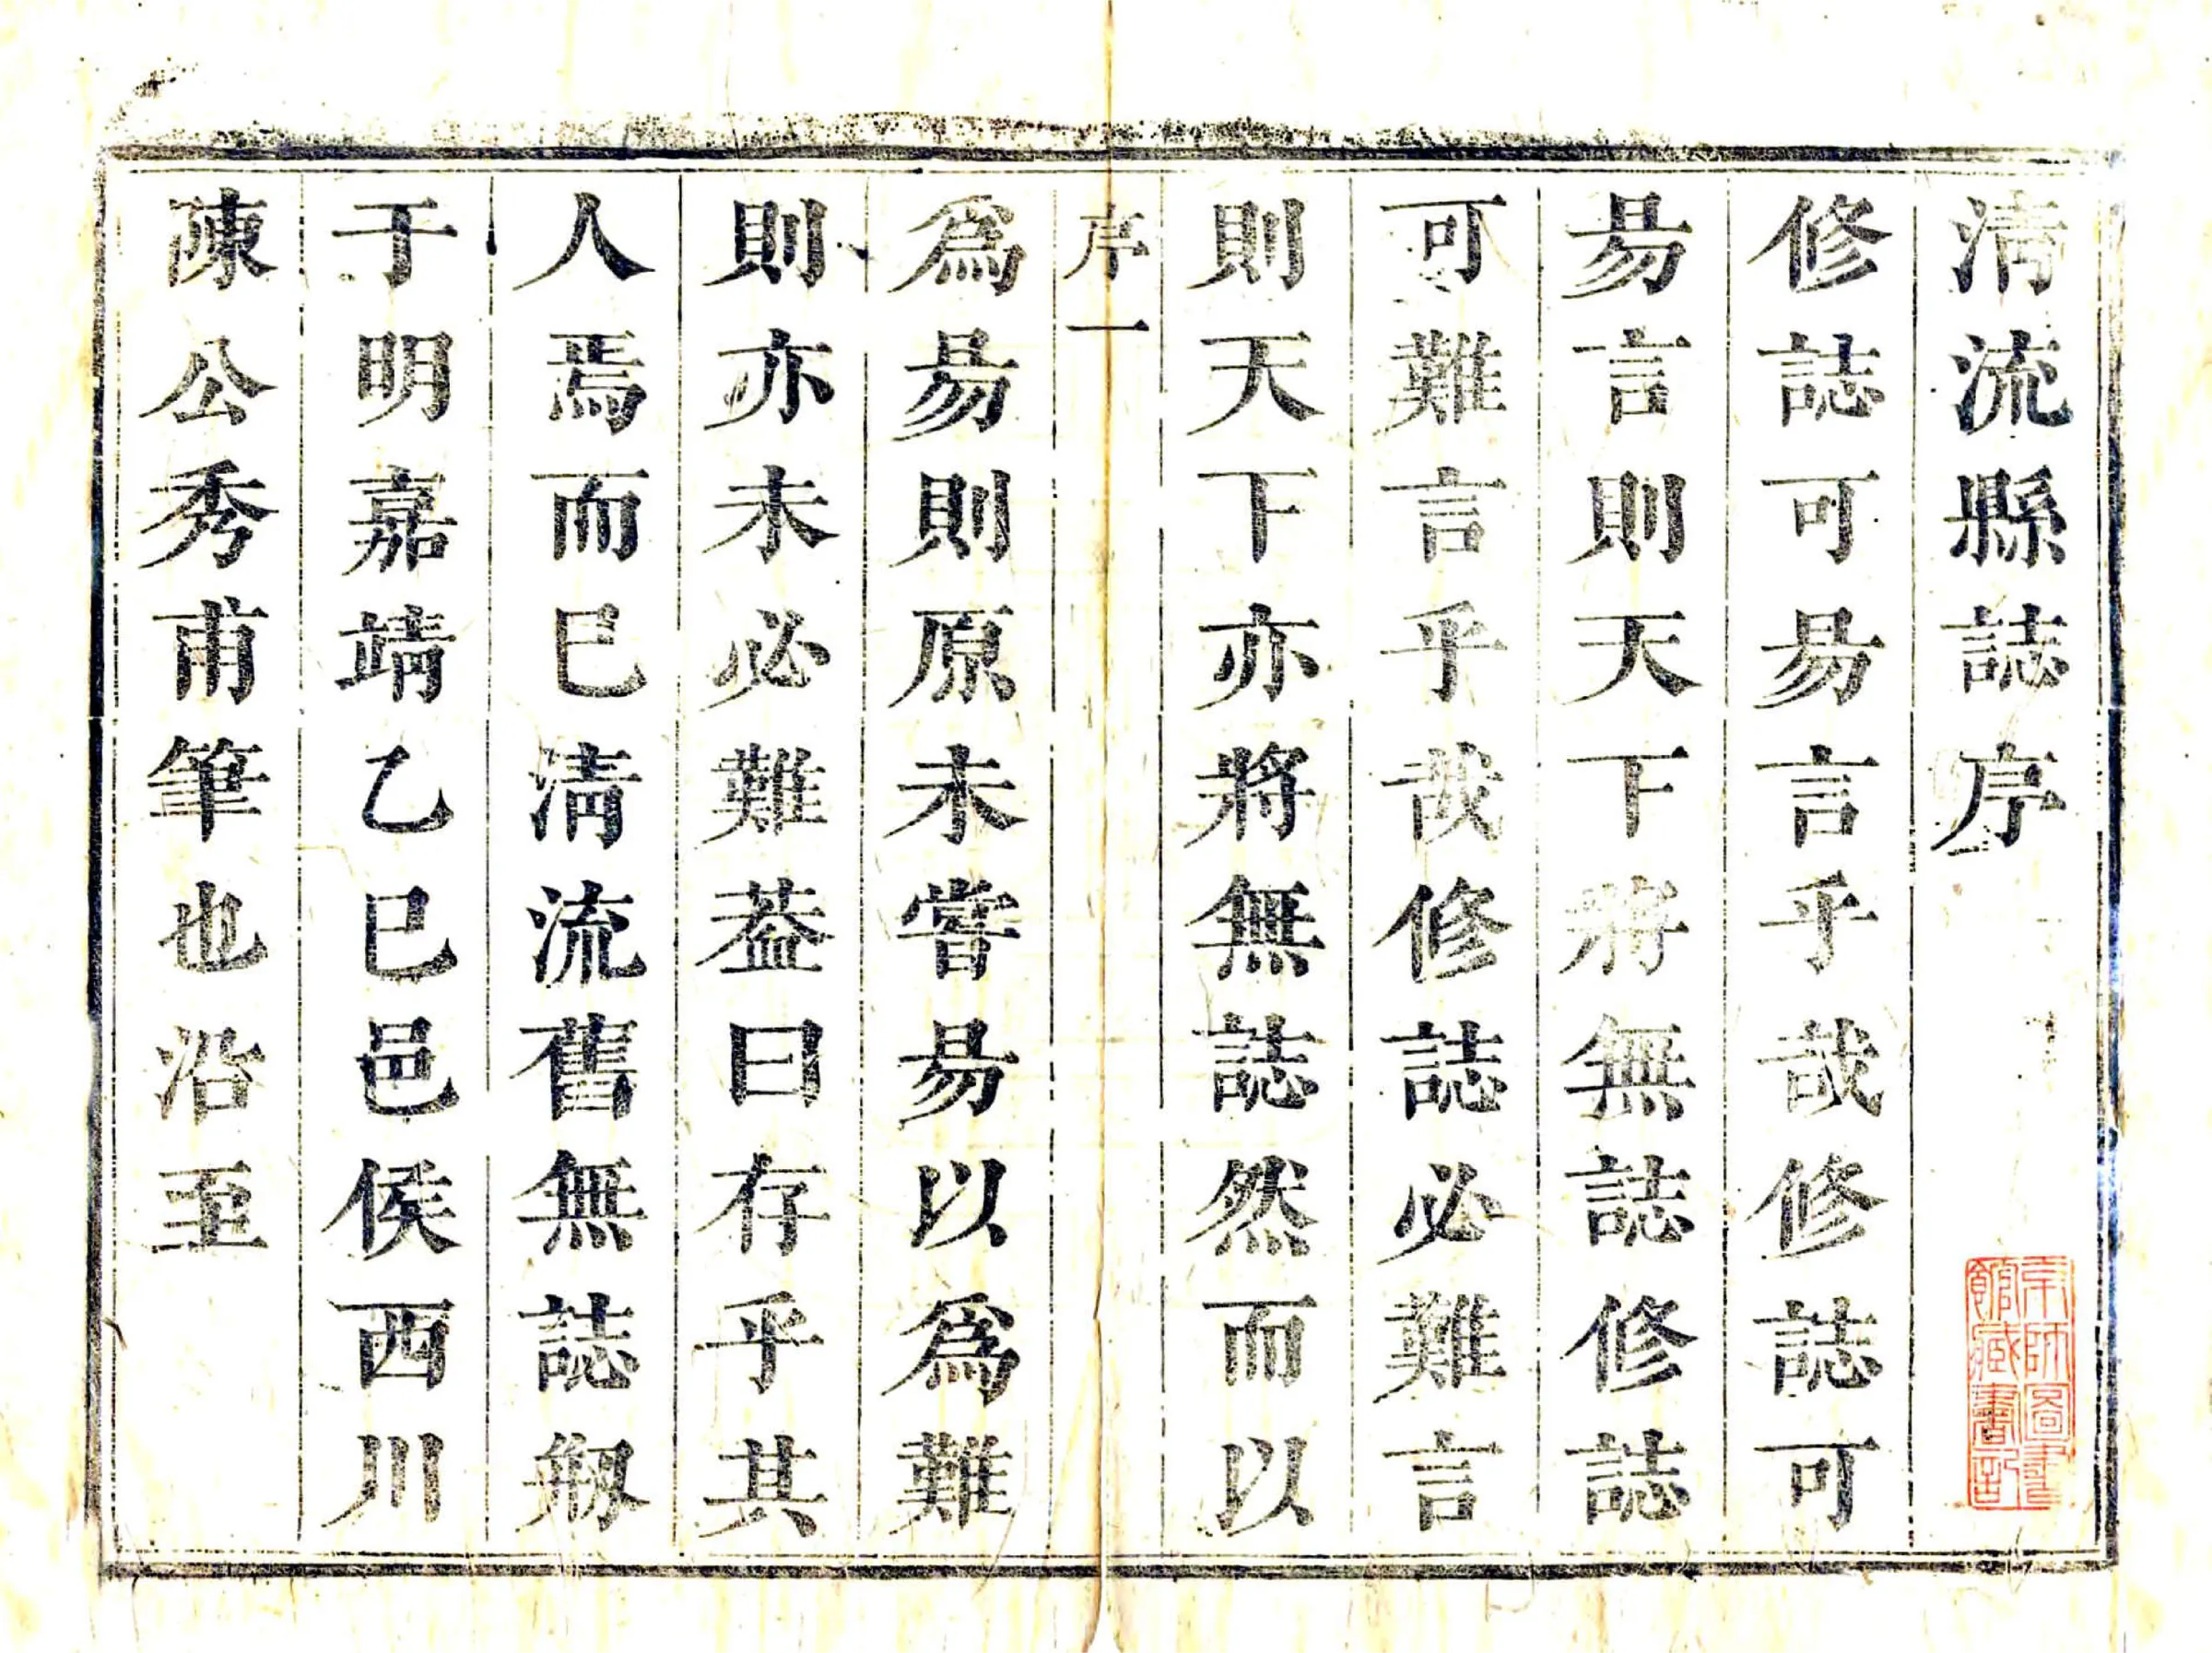 淸流縣誌序
修誌可易言乎哉修誌可
易言則天下將無誌修誌
可難言乎哉修誌必難言
則天下亦將無誌然而以
序一
爲易則原未嘗易以爲難
則亦未必難葢曰存乎其
人焉而已淸流舊無誌剏
于明嘉靖乙巳邑侯西川
陳公秀甫筆也沿至
京師圖書
館藏書記